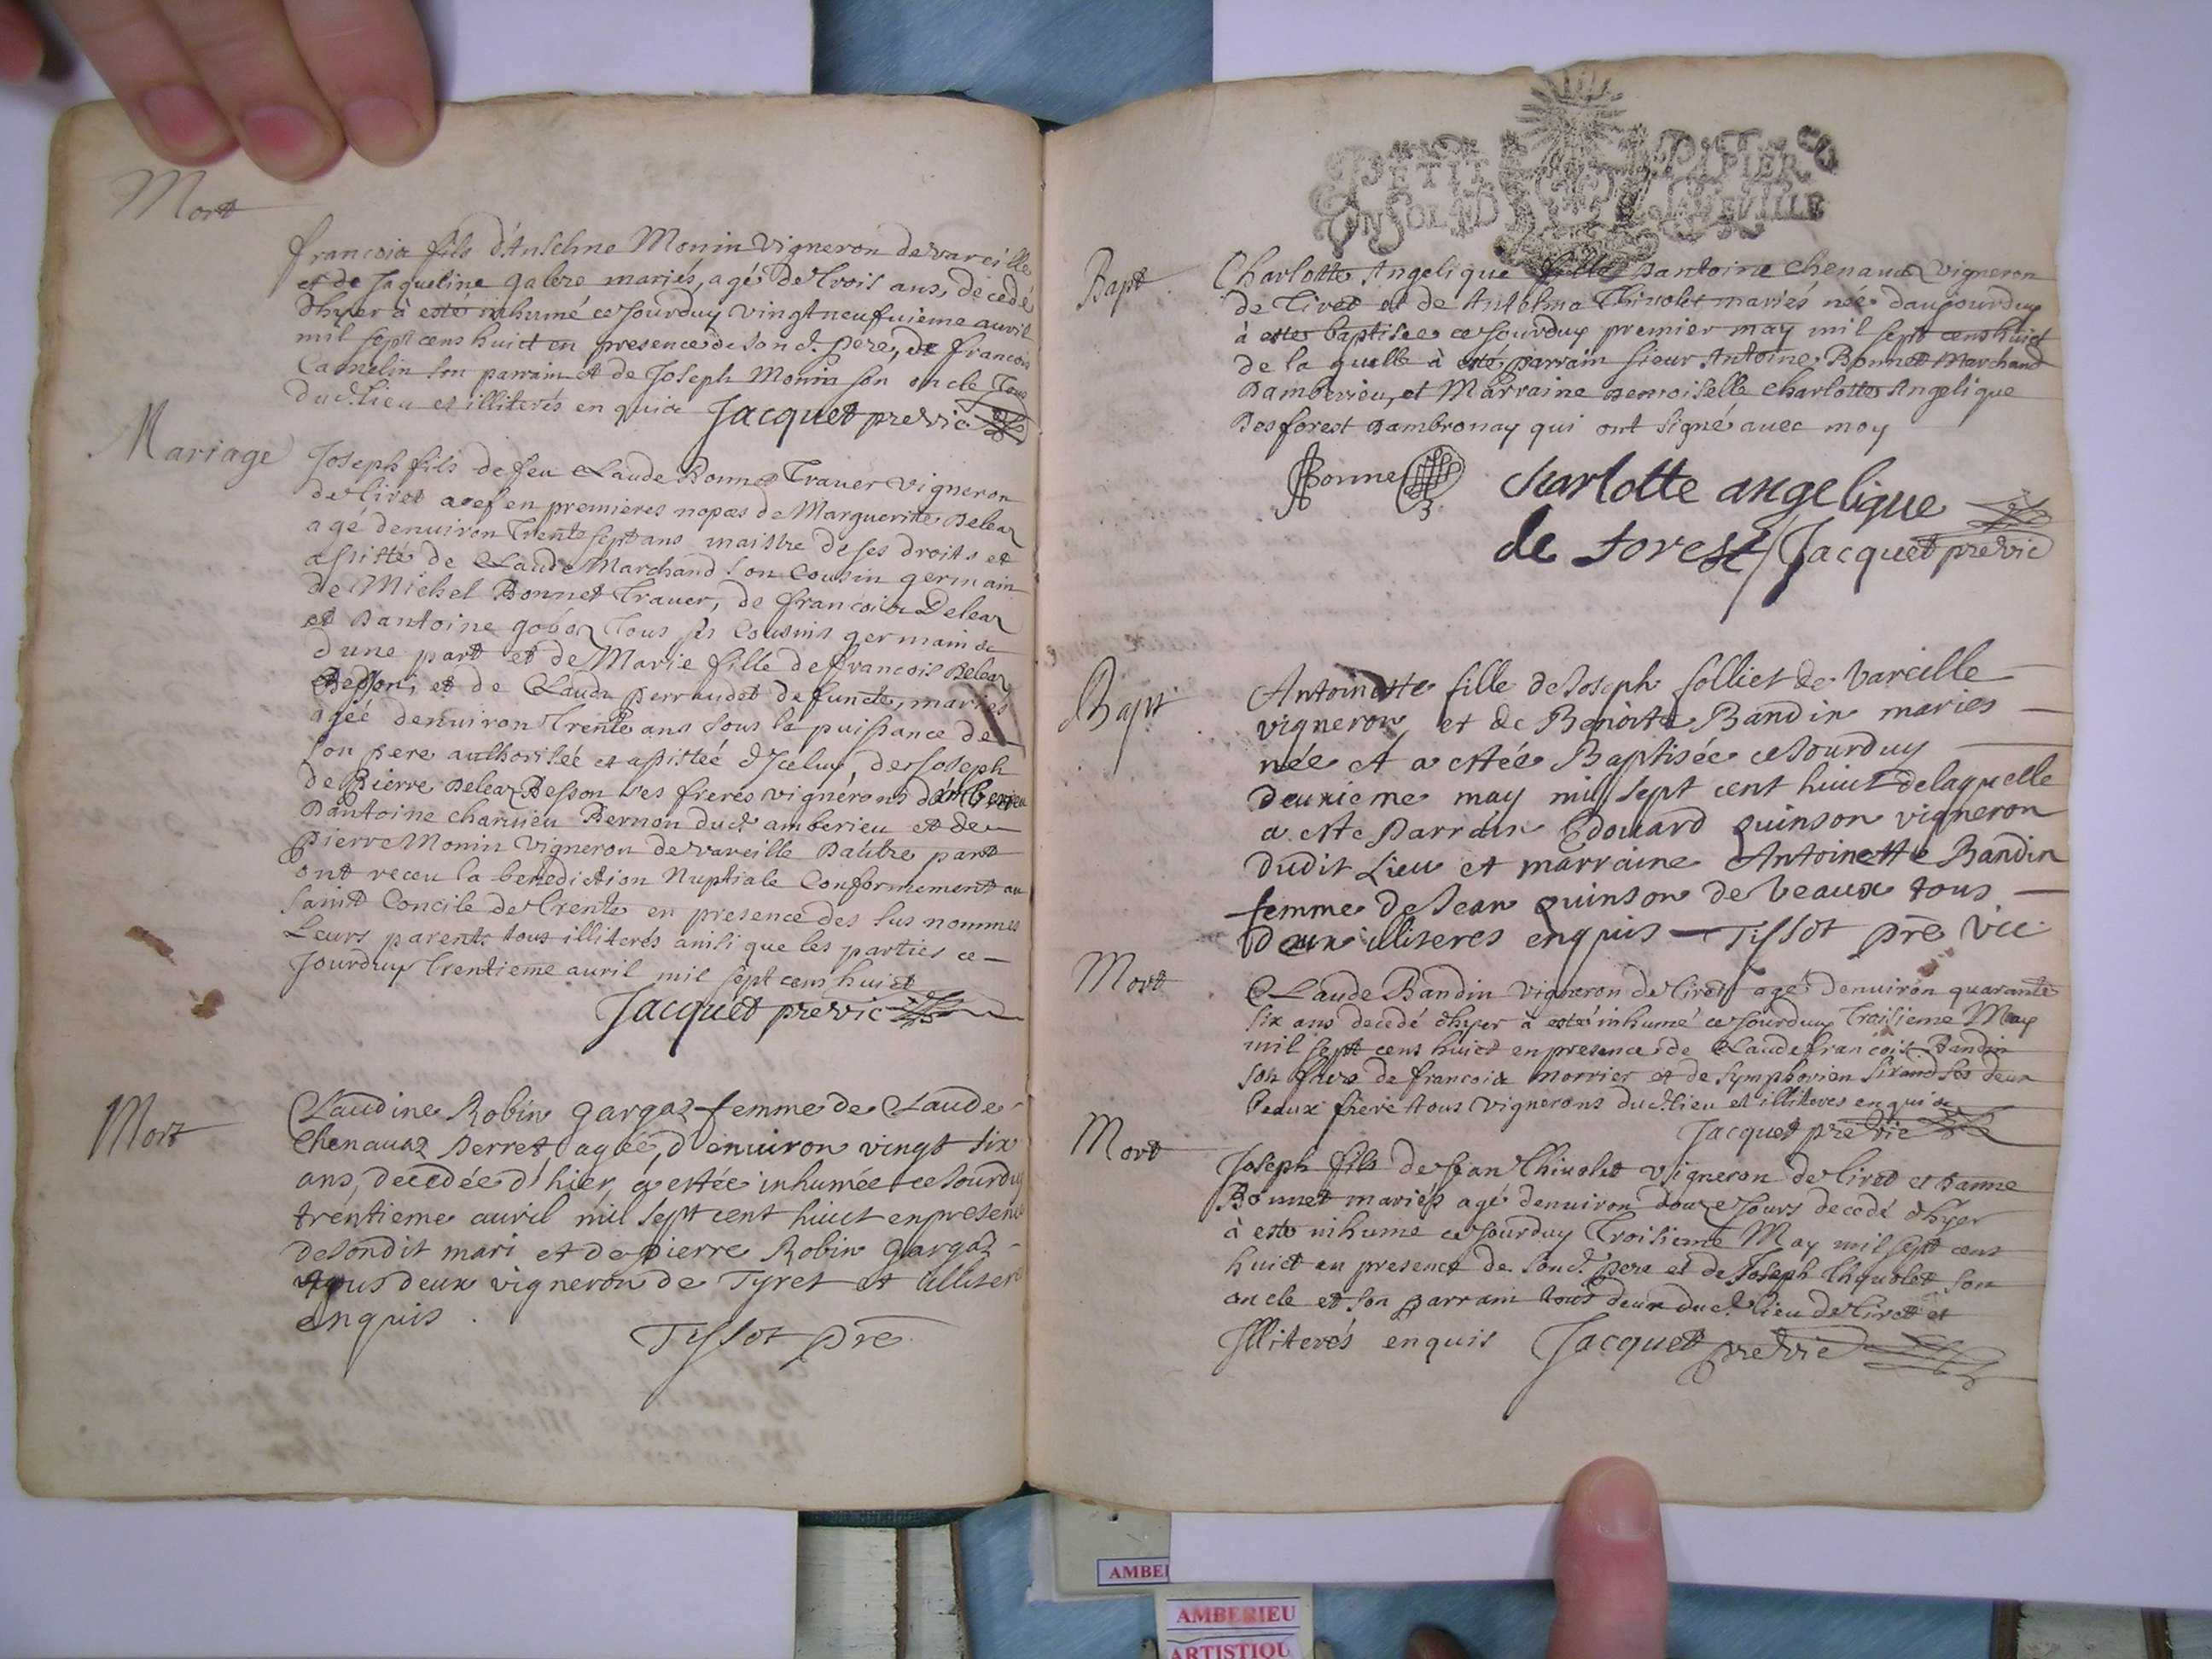 Mort
francois fils d'Anselme Monin vigneron de vareille
et de Jaqueline galere mariés, agé de trois ans, decedé
d'hyer à esté inhumé ce Jourduy vingt neufuieme auril
mil sept cens huict en presence de son d. pere, de francois
Camelin son parrain et de Joseph Monin son oncle Tous
dud. lieu et illiterés enquis Jacquet pre vic
Mariage
Joseph fils de feu Claude Bonnet Trauer vigneron
de tiret veef en premieres nopces de Marguerite Deleaz
agé denuiron Trente sept ans maistre de ses droits et
assisté de Claude Marchand son Cousin germain
de Michel Bonnet Trauer, de francois Deleaz
et Dantoine goboz Tous ses Cousins germains
d'une part et de Marie fille de francois Deleaz
Besson, et de Clauda perraudet defuncte, mariés
agée denuiron Trente ans sous la puissance de
son pere authorisée et assistée d'Iceluy, de Joseph
de Pierre Deleaz Besson ses freres vignerons d'amberieu
Dantoine charuieu Bernon dud. amberieu et de
Pierre Monin vigneron de vareille Dautre part
ont receu la benediction Nuptiale Conformement au
Sainct Concile de Trente en presence des sus nommes
Leurs parents tous illiterés ainsi que les parties ce
Jourduy trentieme auril mil sept cens huict
Jacquet pre vic
Mort
Claudine Robin gargaz femme de Claude
Chenauaz Perret, agée, d'enuiron vingt six
ans, decedée d'hier, a estée inhumée ce Jourduy
trentieme auril mil sept cent huict en presence
de sondit mari et de pierre Robin Gargaz
tous deux vigneron de Tyret et illiteré
enquis.
Tissot pre
PETIT PAPIER
UN SOL
Bapt
Charlotte Angelique fille Dantoine Chenauaz vigneron
de Tiret et de Antelma Thiuolet mariés née daujourduy
à estes baptisee ce Jourduy premier may mil sept cens huict
de la quelle à esté parrain sieur Antoine Bonnet Marchand
Damberieu, et Marraine Demoiselle Charlotte Angelique
Desforest Dambronay qui ont signé auec moy
Bonnet Charlotte angelique
de forest Jacquet pre vic
Bapt.
Antoinette fille de Joseph folliet de vareille
vigneron et de Benoite Bandin maries
née et a estée Baptisée ce Jourduy
deuxieme may mil sept cent huict de laquelle
a este Parrain Edouard quinson vigneron
dudit Lieu et marraine Antoinette Bandin
femme de Jean quinson de veaux tous
deux illiteres enquis Tissot pre vic
Mort
Claude Bandin vigneron de tiret agé denuiron quarante
six ans decedé d'hyer à esté inhumé ce Jourduy Troisieme May
mil sept cens huict en presence de Claude francois Bandin
son frere de francois morrier et de Symphorien Sirand ses deux
beaux frere tous vignerons dud. lieu et illiteres enquis
Jacquet pre vic
Mort
Joseph fils de Jean Thiuolet vigneron de tiret et Danne
Bonnet mariés agé denuiron douze Jours decedé d'hyer
à esté inhume ce Jourduy Troisieme May mil sept cens
huict en presence de son d. pere et de Joseph Thyuolet son
oncle et son parrain tous deux dud. lieu de tiret et
Illiterés enquis Jacquet pre vic
AMBE
AMBERIEU
ARTISTIQU